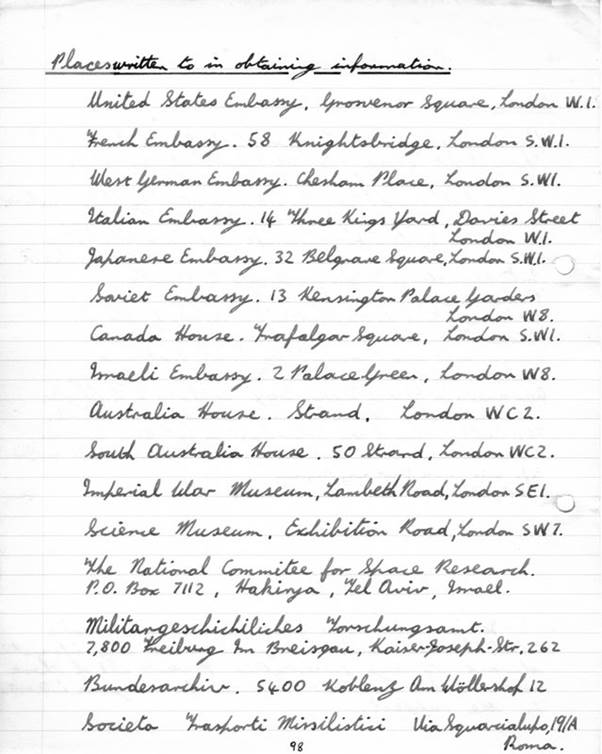 Places written to in obtaining information.
United States Embassy, Grosvenor Square, London W.1.
French Embassy. 58 Knightsbridge, London S.W.1.
West German Embassy. Chesham Place, London S.W1.
Italian Embassy. 14 Three Kings Yard, Davies Street
London W.1.
Japanese Embassy. 32 Belgrave Square, London S.W.1.
Soviet Embassy. 13 Kensington Palace Gardens
London W8.
Canada House. Trafalgar Square, London S.W1.
Israeli Embassy. 2 Palace Green, London W8.
Australia House. Strand, London WC2.
South Australia House. 50 Strand, London WC2.
Imperial War Museum, Lambeth Road, London SE1.
Science Museum, Exhibition Road, London SW7.
The National Commitee for Space Research.
P.O. Box 7112, Hakirya, Tel Aviv, Israel.
Militargeschichiliches Forschungsamt.
7,800 Freiburg Im Breisgau, Kaiser-Joseph-Str, 262
Bundesarchiv. 5400 Koblenz Am Wöllershof 12
Societa Trasporti Missilistici Via Squarcialupo, 19/A
Roma.
98